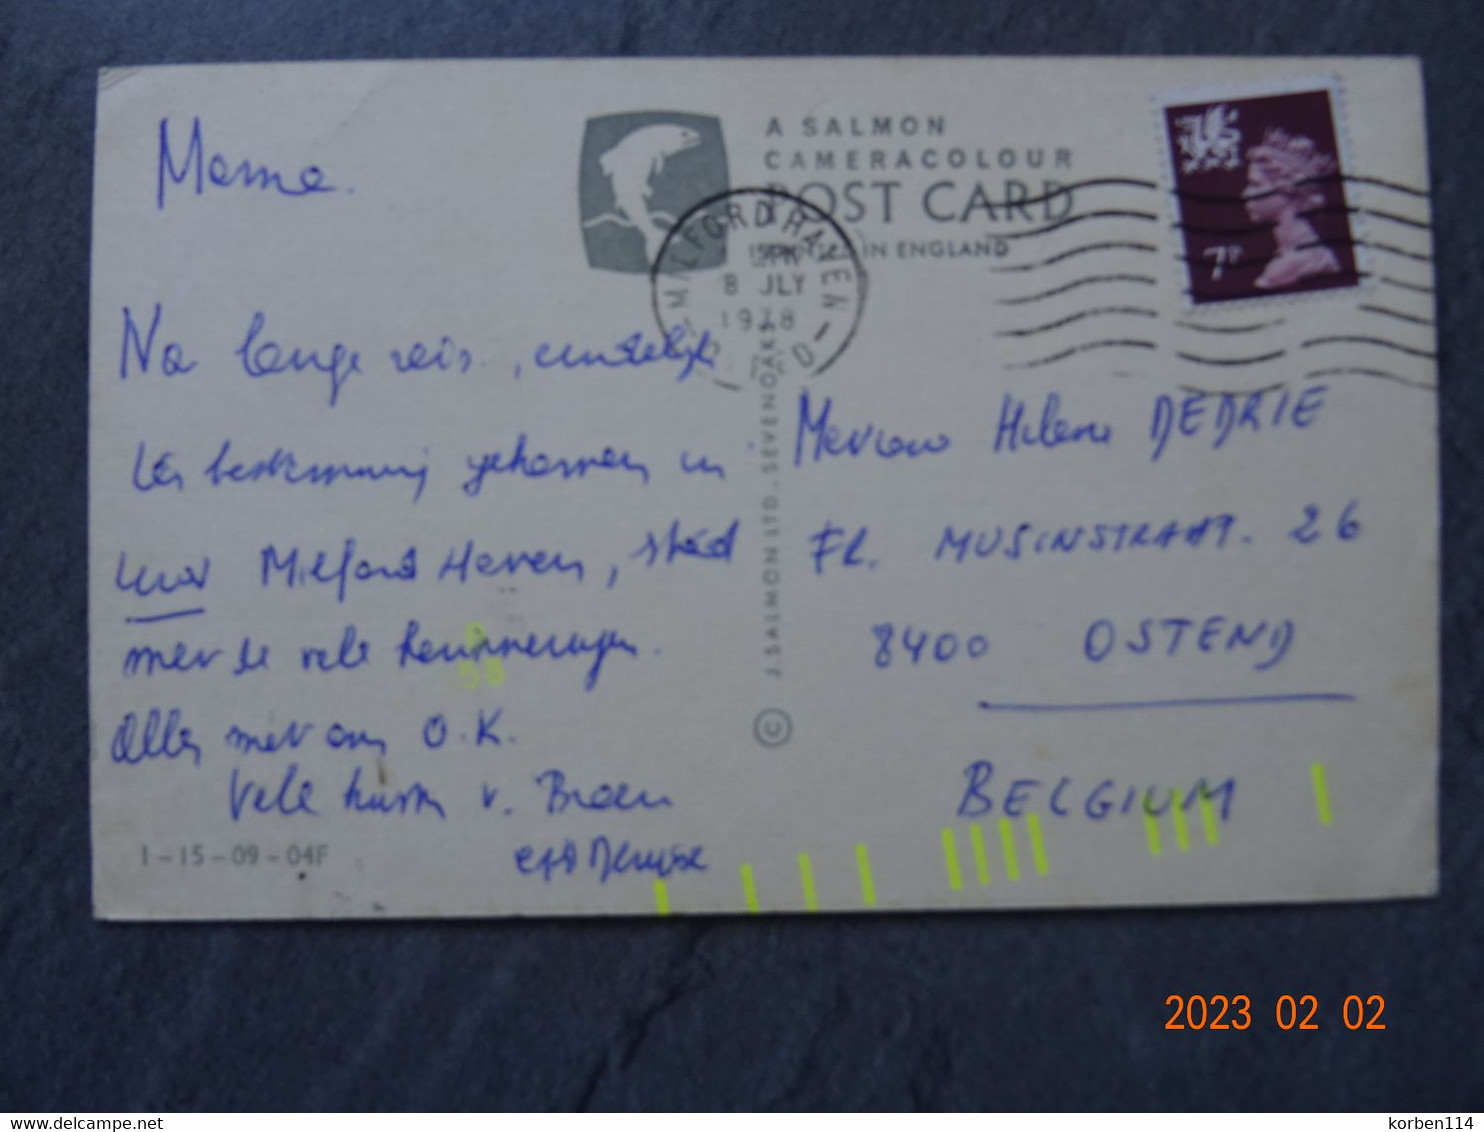 Mama.
A SALMON
CAMERACOLOUR
POST CARD
PRINTED IN ENGLAND
MILFORD HAVEN
8 JLY
1978
7P
Na lange reis, eindelijk
ter bestemming gekomen in
Milford Haven, stad
met de vele herinneringen.
Alles met ons O.K.
Vele kussen v. Broer
1-15-09-04F
J. SALMON LTD., SEVENOAKS
©
Mevrouw Helene DEDRIE
FR. MUSINSTRAAT. 26
8400 OSTEND
BELGIUM
2023 02 02
delcampe.net
korben114